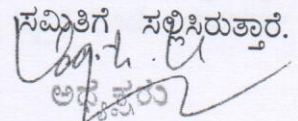 ಸಮಿತಿಗೆ ಸಲ್ಲಿಸಿರುತ್ತಾರೆ.
ಅಧ್ಯಕ್ಷರು